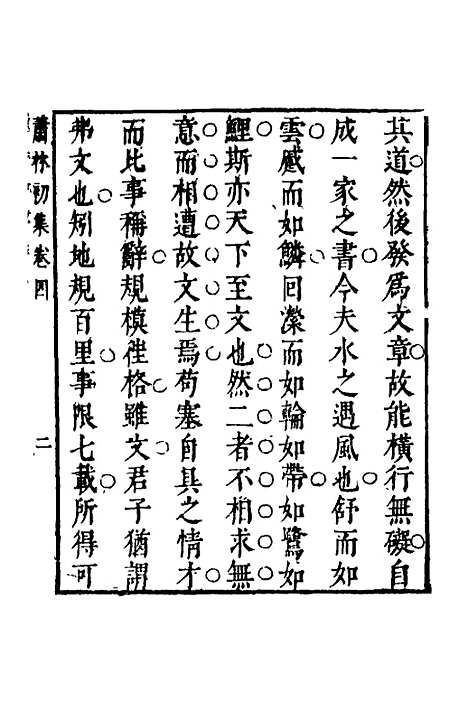 其道然後發爲文章故能橫行無礙自
成一家之書今夫水之遇風也舒而如
雲蹙而如鱗回瀠而如輪如帶如鷺如
鯉斯亦天下至文也然二者不相求無
意而相遭故文生焉苟塞自具之情才
而比事稱辭規模徃格雖文君子猶謂
弗文也矧地規百里事限七載所得可
肅林初集卷四
二